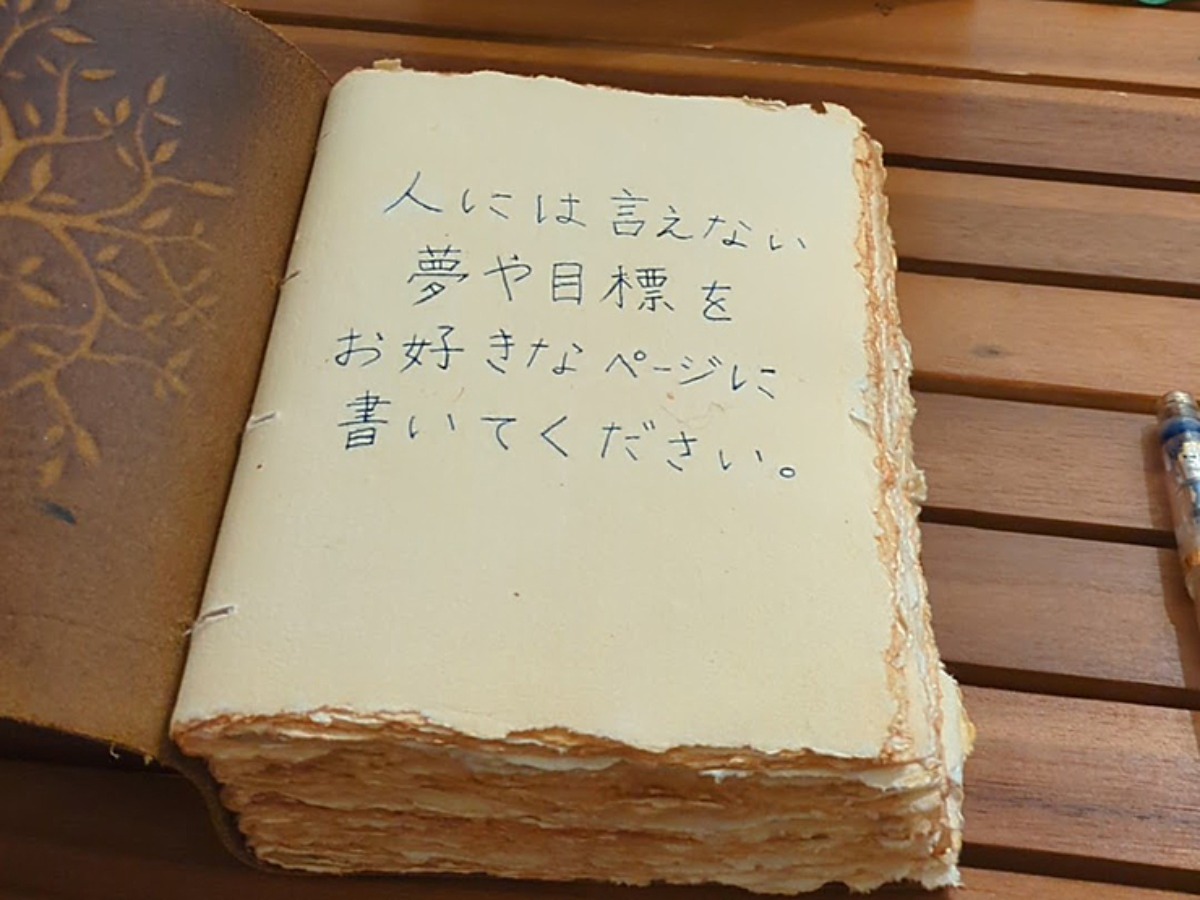 人には言えない
夢や目標を
お好きなページに
書いてください。